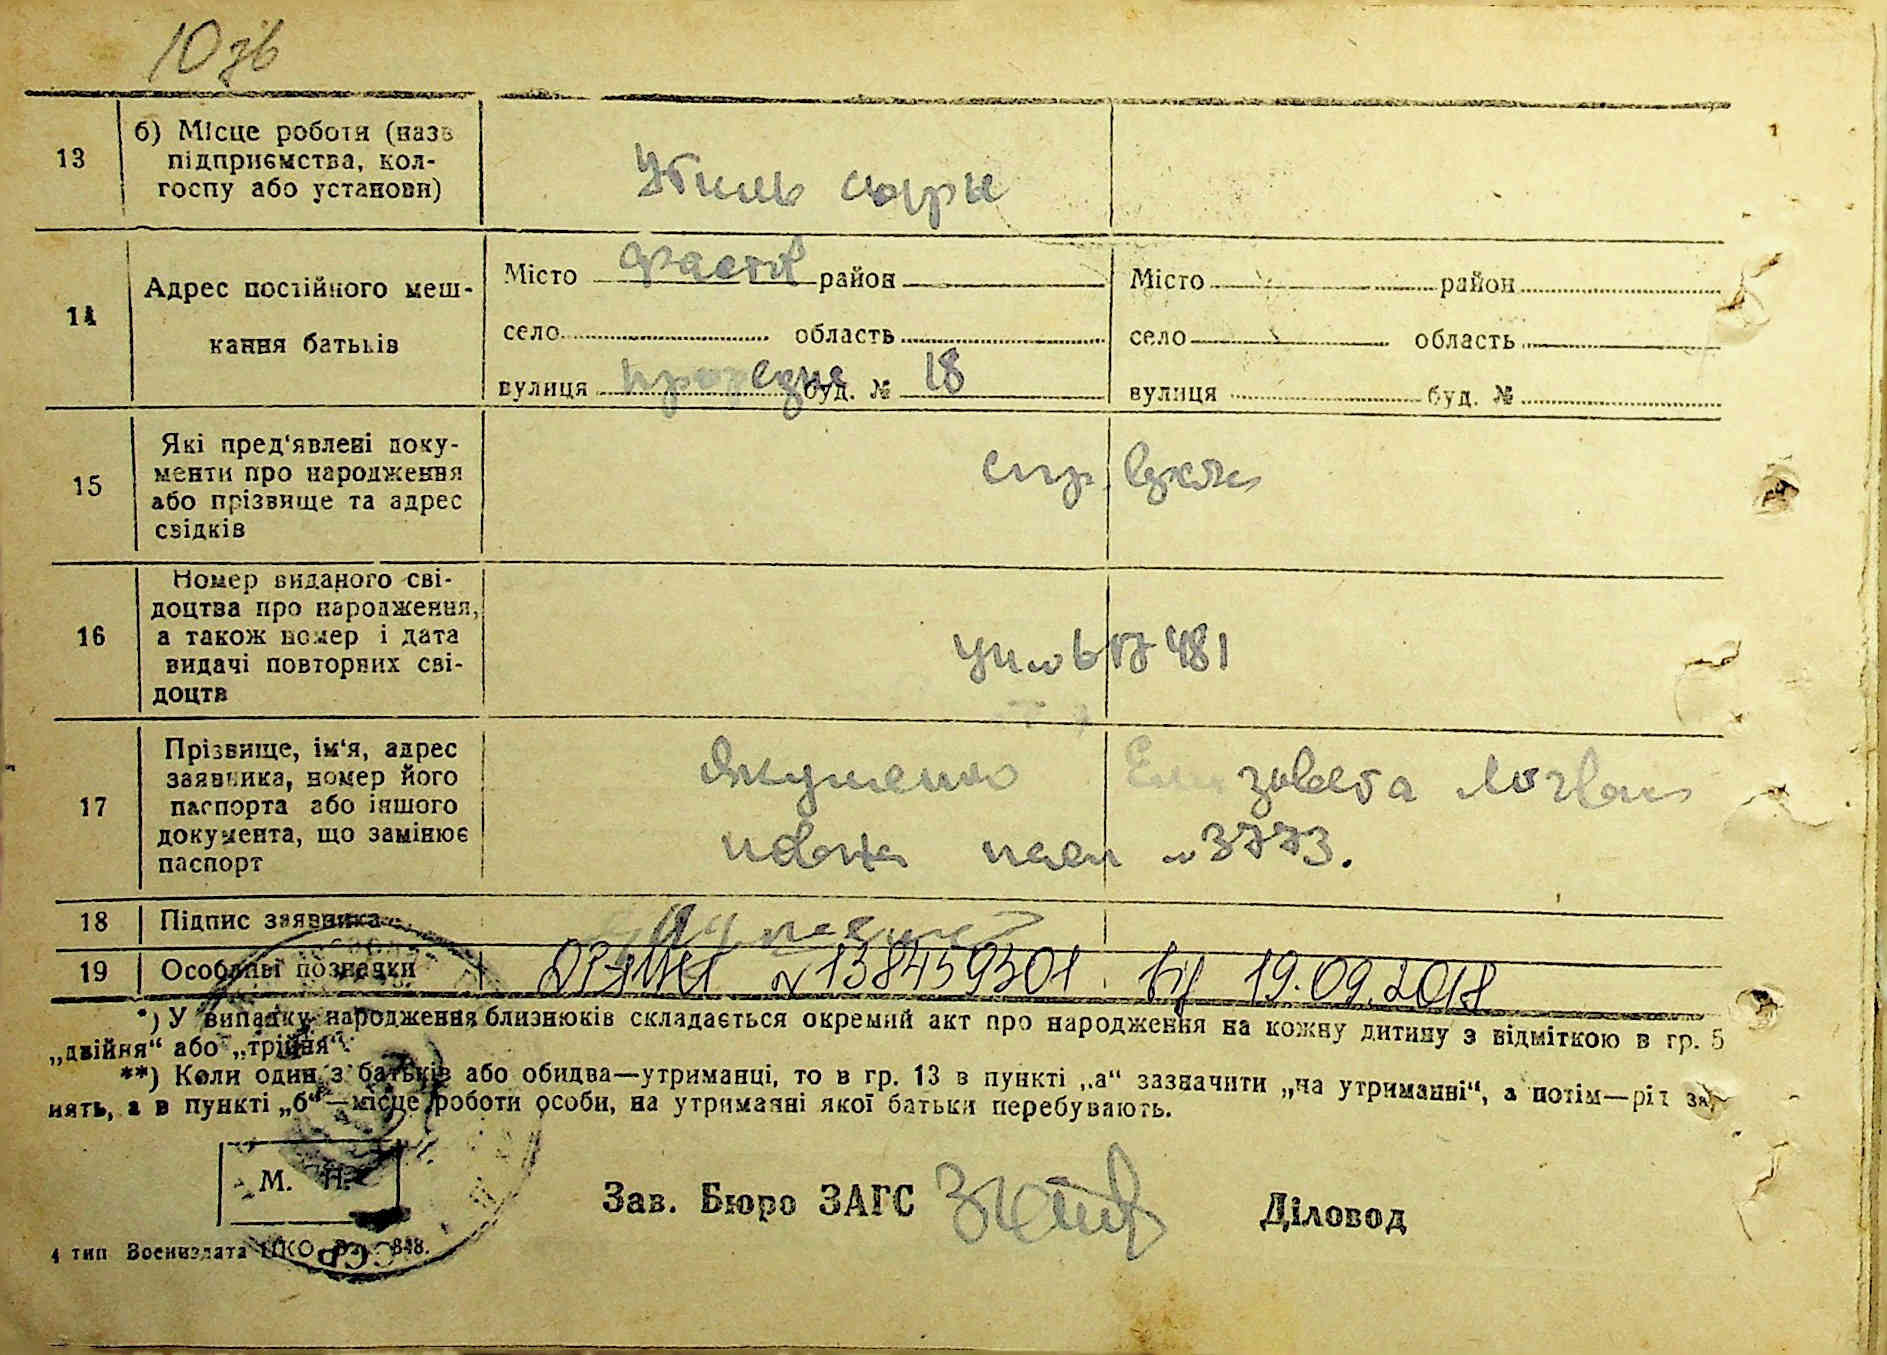 10 зв
13
б) Місце роботи (назв
підприємства, кол-
госпу або установи)
Утиль сырье
14
Адрес постійного меш-
кання батьків
Місто Фастів район
село область
вулиця буд. № 18
Місто район
село область
вулиця буд. №
15
Які пред‘явлені доку-
менти про народження
або прізвище та адрес
свідків
16
Номер виданого сві-
доцтва про народження,
а також номер і дата
видачі повторних сві-
доцтв
481
17
Прізвище, ім‘я, адрес
заявника, номер його
паспорта або іншого
документа, що замінює
паспорт
Якушенко Елизавета
№ 3773.
18
Підпис заявника
19
Особливі позначки
№ 138459301 від 19.09.2018
*) У випадку народження близнюків складається окремий акт про народження на кожну дитину з відміткою в гр. 5
„двійня“ або „трійня“.
**) Коли один з батьків або обидва—утриманці, то в гр. 13 в пункті „а“ зазначити „на утриманні“, а потім—рід за-
нять, а в пункті „б“—місце роботи особи, на утриманні якої батьки перебувають.
М. П.
Зав. Бюро ЗАГС
Діловод
4 тип Воениздата НКО